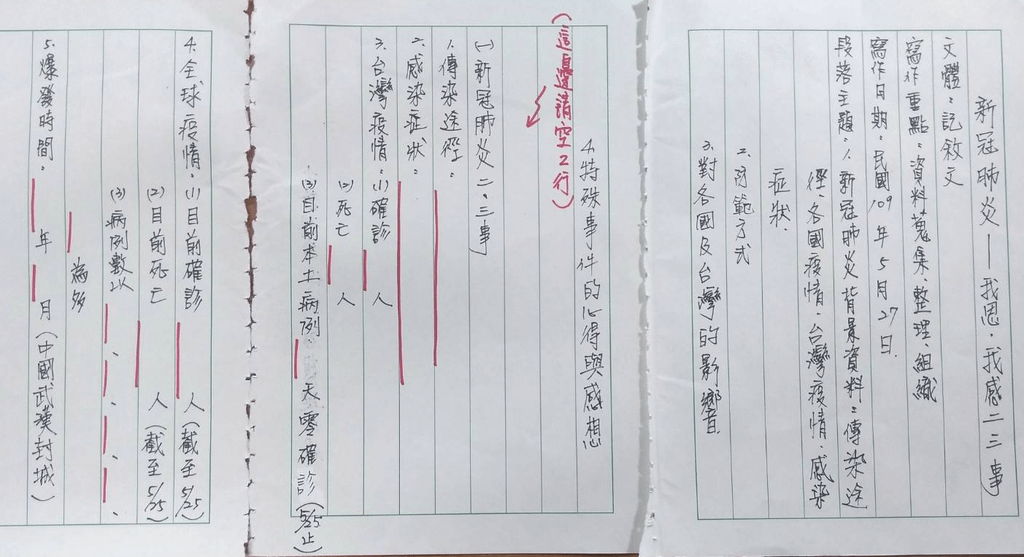 新冠肺炎——我思.我感二三事
文體：記敘文
寫作重點：資料蒐集、整理、組織
寫作日期：民國109年5月27日.
段落主題：1.新冠肺炎背景資料：傳染途
徑、各國疫情、台灣疫情、感染
症狀.
2.防範方式
3.對各國及台灣的影響.
4.特殊事件的心得與感想
（這邊請空2行）
(一)新冠肺炎二、三事
1.傳染途徑：
2.感染症狀：
3.台灣疫情：(1)確診 人
(2)死亡 人
(3)目前本土病例 天零確診(5/25止)
4.全球疫情：(1)目前確診 人(截至5/25)
(2)目前死亡 人(截至5/25)
(3)病例數以 、 、 、 、
為多
5.爆發時間： 年 月(中國武漢封城)